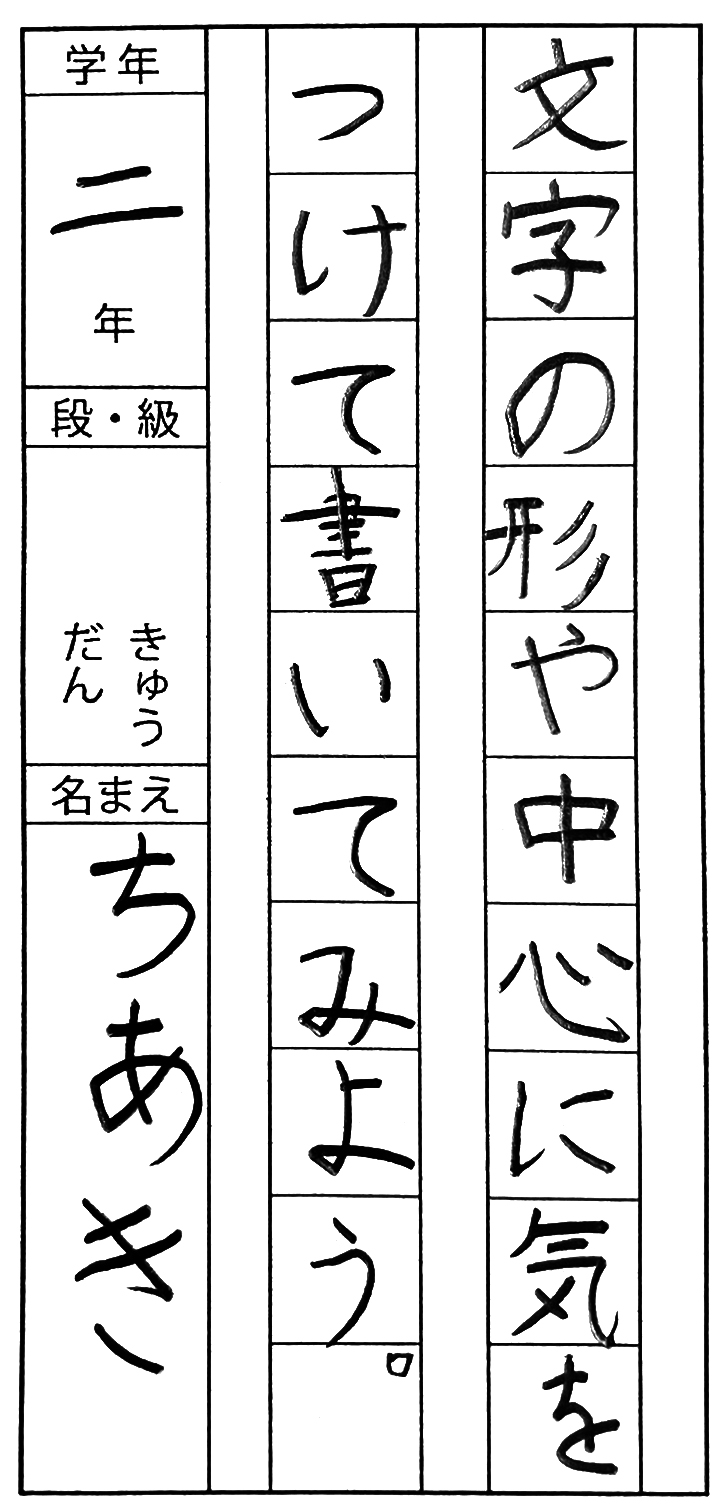 文字の形や中心に気を
つけて書いてみよう。
学年
二年
段・級
きゅう
だん
名まえ
ちあき